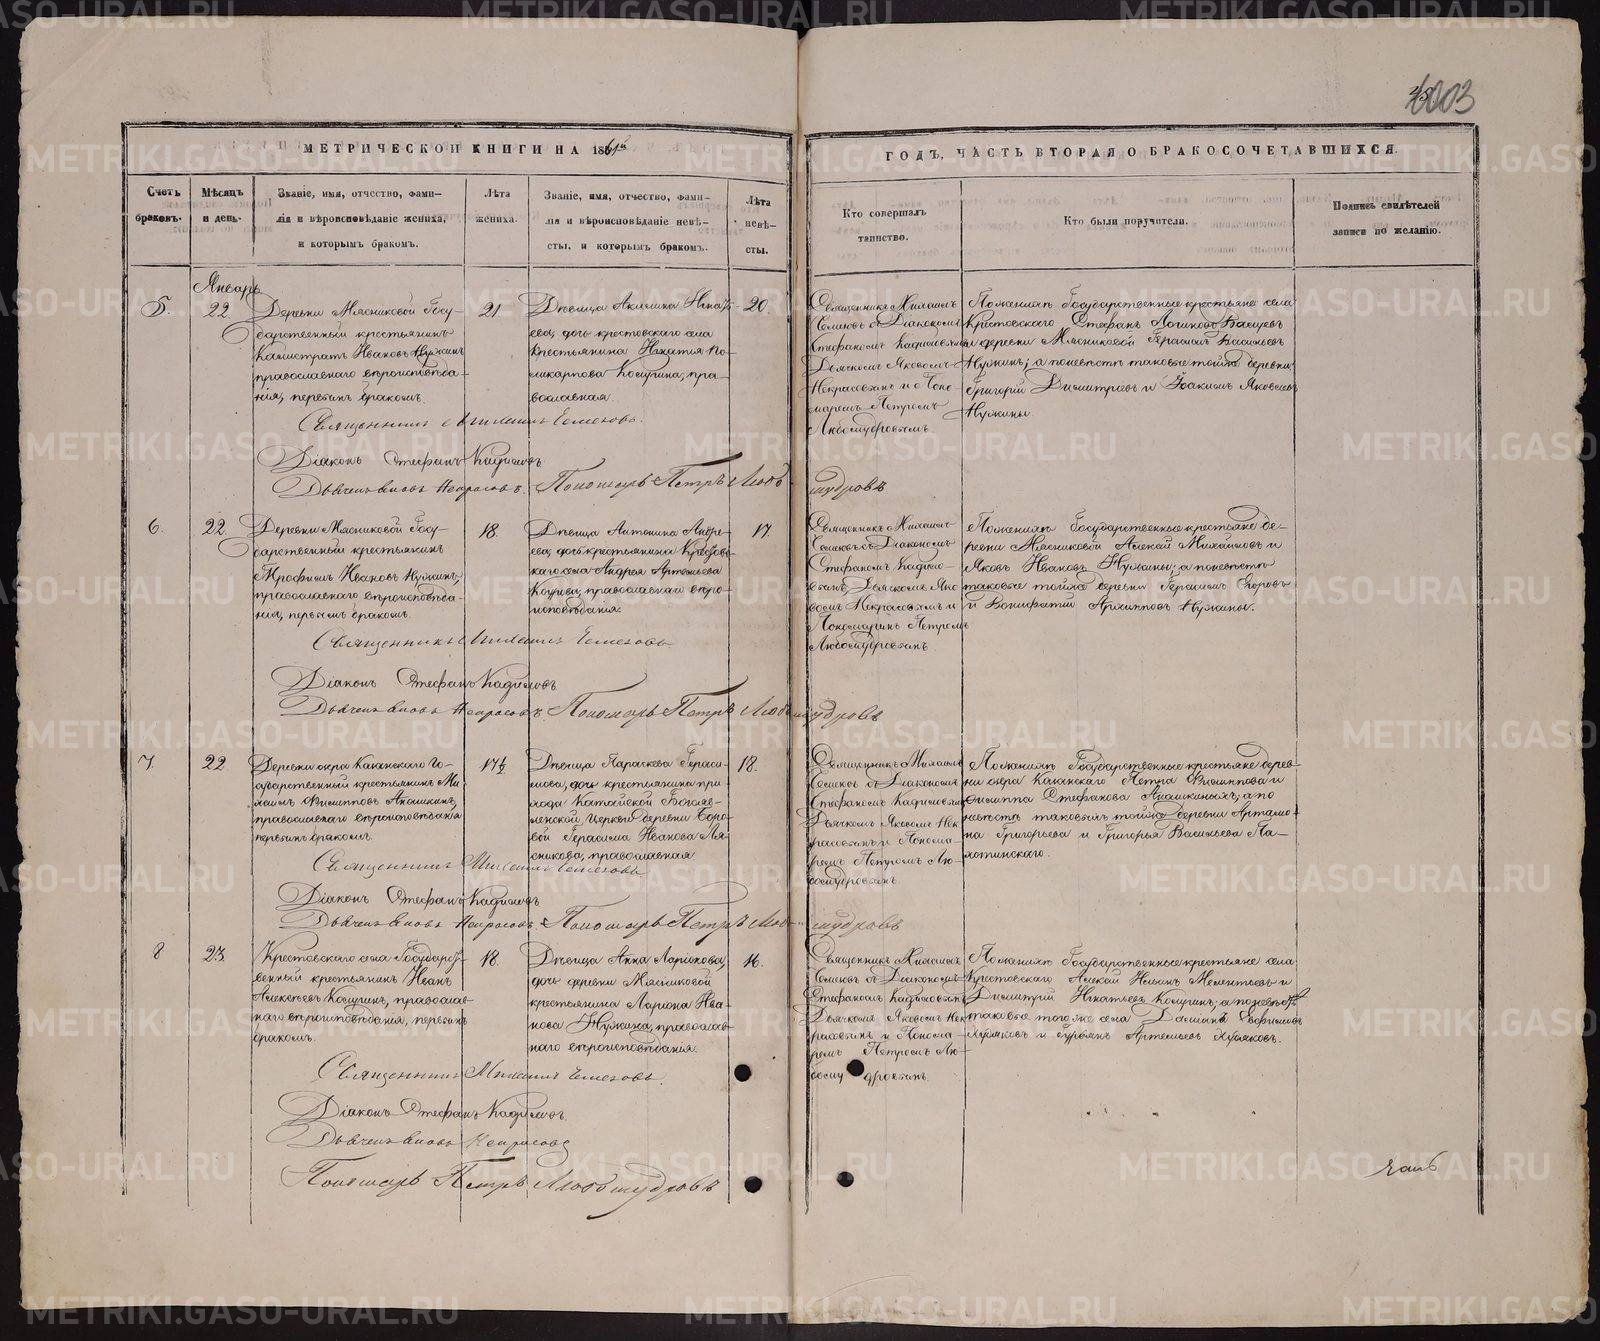 6003
МЕТРИЧЕСКОЙ КНИГИ НА 1861й
ГОДЪ, ЧАСТЬ ВТОРАЯ О БРАКОСОЧЕТАВШИХСЯ.
Счетъ браковъ.
Мѣсяцъ и день.
Званіе, имя, отчество, фами-
лія и вѣроисповѣданіе жениха,
и которымъ бракомъ.
Лѣта жениха.
Званіе, имя, отчество, фами-
лія и вѣроисповѣданіе невѣ-
сты, и которымъ бракомъ.
Лѣта невѣ-
сты.
Кто совершалъ
таинство.
Кто были поручители.
Подпись свидѣтелей
записи по желанію.
Январь
5.
22
Деревни Мясниковой Госу-
дарственный крестьянинъ
Калистратъ Ивановъ Нужинъ
православнаго вѣроисповѣда-
нія, первымъ бракомъ.
21
Дѣвица Акилина Игнать-
ева, дочь крестовскаго села
крестьянина Игнатія По-
ликарпова Косугина, пра-
вославная.
20.
Священникъ Михаилъ
съ Діакономъ
Стефаномъ
Дьячкомъ Яковомъ
Некрасовымъ и Поно-
маремъ Петромъ
Любомудровымъ.
По женихѣ Государственные крестьяне села
Крестовскаго Стефанъ
и деревни Мясниковой Герасимъ Васильевъ
Нужинъ; а по невѣстѣ таковые той же деревни
Григорій Димитріевъ и Іоакимъ Яковлевъ
Нужины
Священникъ Михаилъ
Діаконъ Стефанъ
Дьячекъ Яковъ Некрасовъ. Пономарь Петръ Любомудровъ
6.
22
Деревни Мясниковой Госу-
дарственный крестьянинъ
Трофимъ Ивановъ Нужинъ,
православнаго вѣроисповѣда-
нія, первымъ бракомъ.
18.
Дѣвица Антонина Андре-
ева, дочь крестьянина Крестовс-
каго села Андрея Артемьева
православнаго вѣро-
исповѣданія.
17.
Священникъ Михаилъ
съ Діакономъ
Стефаномъ
Дьячкомъ Яко-
вомъ Некрасовымъ и
Пономаремъ Петромъ
Любомудровымъ.
По женихѣ Государственные крестьяне де-
ревни Мясниковой Алексѣй Михайловъ и
Яковъ Ивановъ Нужины; а по невѣстѣ
таковые той же деревни Герасимъ Егоровъ
и Вонифатій Архиповъ Нужины.
Священникъ Михаилъ
Діаконъ Стефанъ
Дьячекъ Яковъ Некрасовъ Пономарь Петръ Любомудровъ
7.
22
Деревни озера Го-
сударственный крестьянинъ Ми-
хаилъ Филипповъ
православнаго вѣроисповѣданія
первымъ бракомъ.
17½
Дѣвица Параскева Гераси-
мова, дочь крестьянина при-
хода Катайской Богояв-
ленской церкви деревни Боро-
вой Герасима Иванова
православная
18.
Священникъ Михаилъ
съ Діакономъ
Стефаномъ
Дьячкомъ Яковомъ Нек-
расовымъ и Понома-
ремъ Петромъ Лю-
бомудровымъ.
По женихѣ Государственные крестьяне дерев-
ни озера Петра Филиппова и
Филиппа Стефанова а по
невѣстѣ таковыхъ той же деревни Артамо-
на Григорьева и Григорья Васильева Па-
хотинскаго.
Священникъ Михаилъ
Діаконъ Стефанъ
Дьячекъ Яковъ Некрасовъ. Пономарь Петръ Любомудровъ
8
23.
Крестовскаго села Государст-
венный крестьянинъ Иванъ
Алексѣевъ Косугинъ, православ-
наго вѣроисповѣданія, первымъ
бракомъ.
18.
Дѣвица Анна Ларіонова,
дочь деревни Мясниковой
крестьянина Ларіона Ива-
нова Нужина, православ-
наго вѣроисповѣданія.
16.
Священникъ Михаилъ
съ Діакономъ
Стефаномъ
Дьячкомъ Яковомъ Нек-
расовымъ и Понома-
ремъ Петромъ Лю-
бомудровымъ.
По женихѣ Государственные крестьяне села
Крестовскаго Алексѣй и
Димитрій Игнатьевъ Косугинъ, а по невѣстѣ
таковые того же села Даміанъ Евфимовъ
и Артемьевъ
Священникъ Михаилъ
Діаконъ Стефанъ
Дьячекъ Яковъ Некрасовъ
Пономарь Петръ Любомудровъ
METRIKI.GASO-URAL.RU